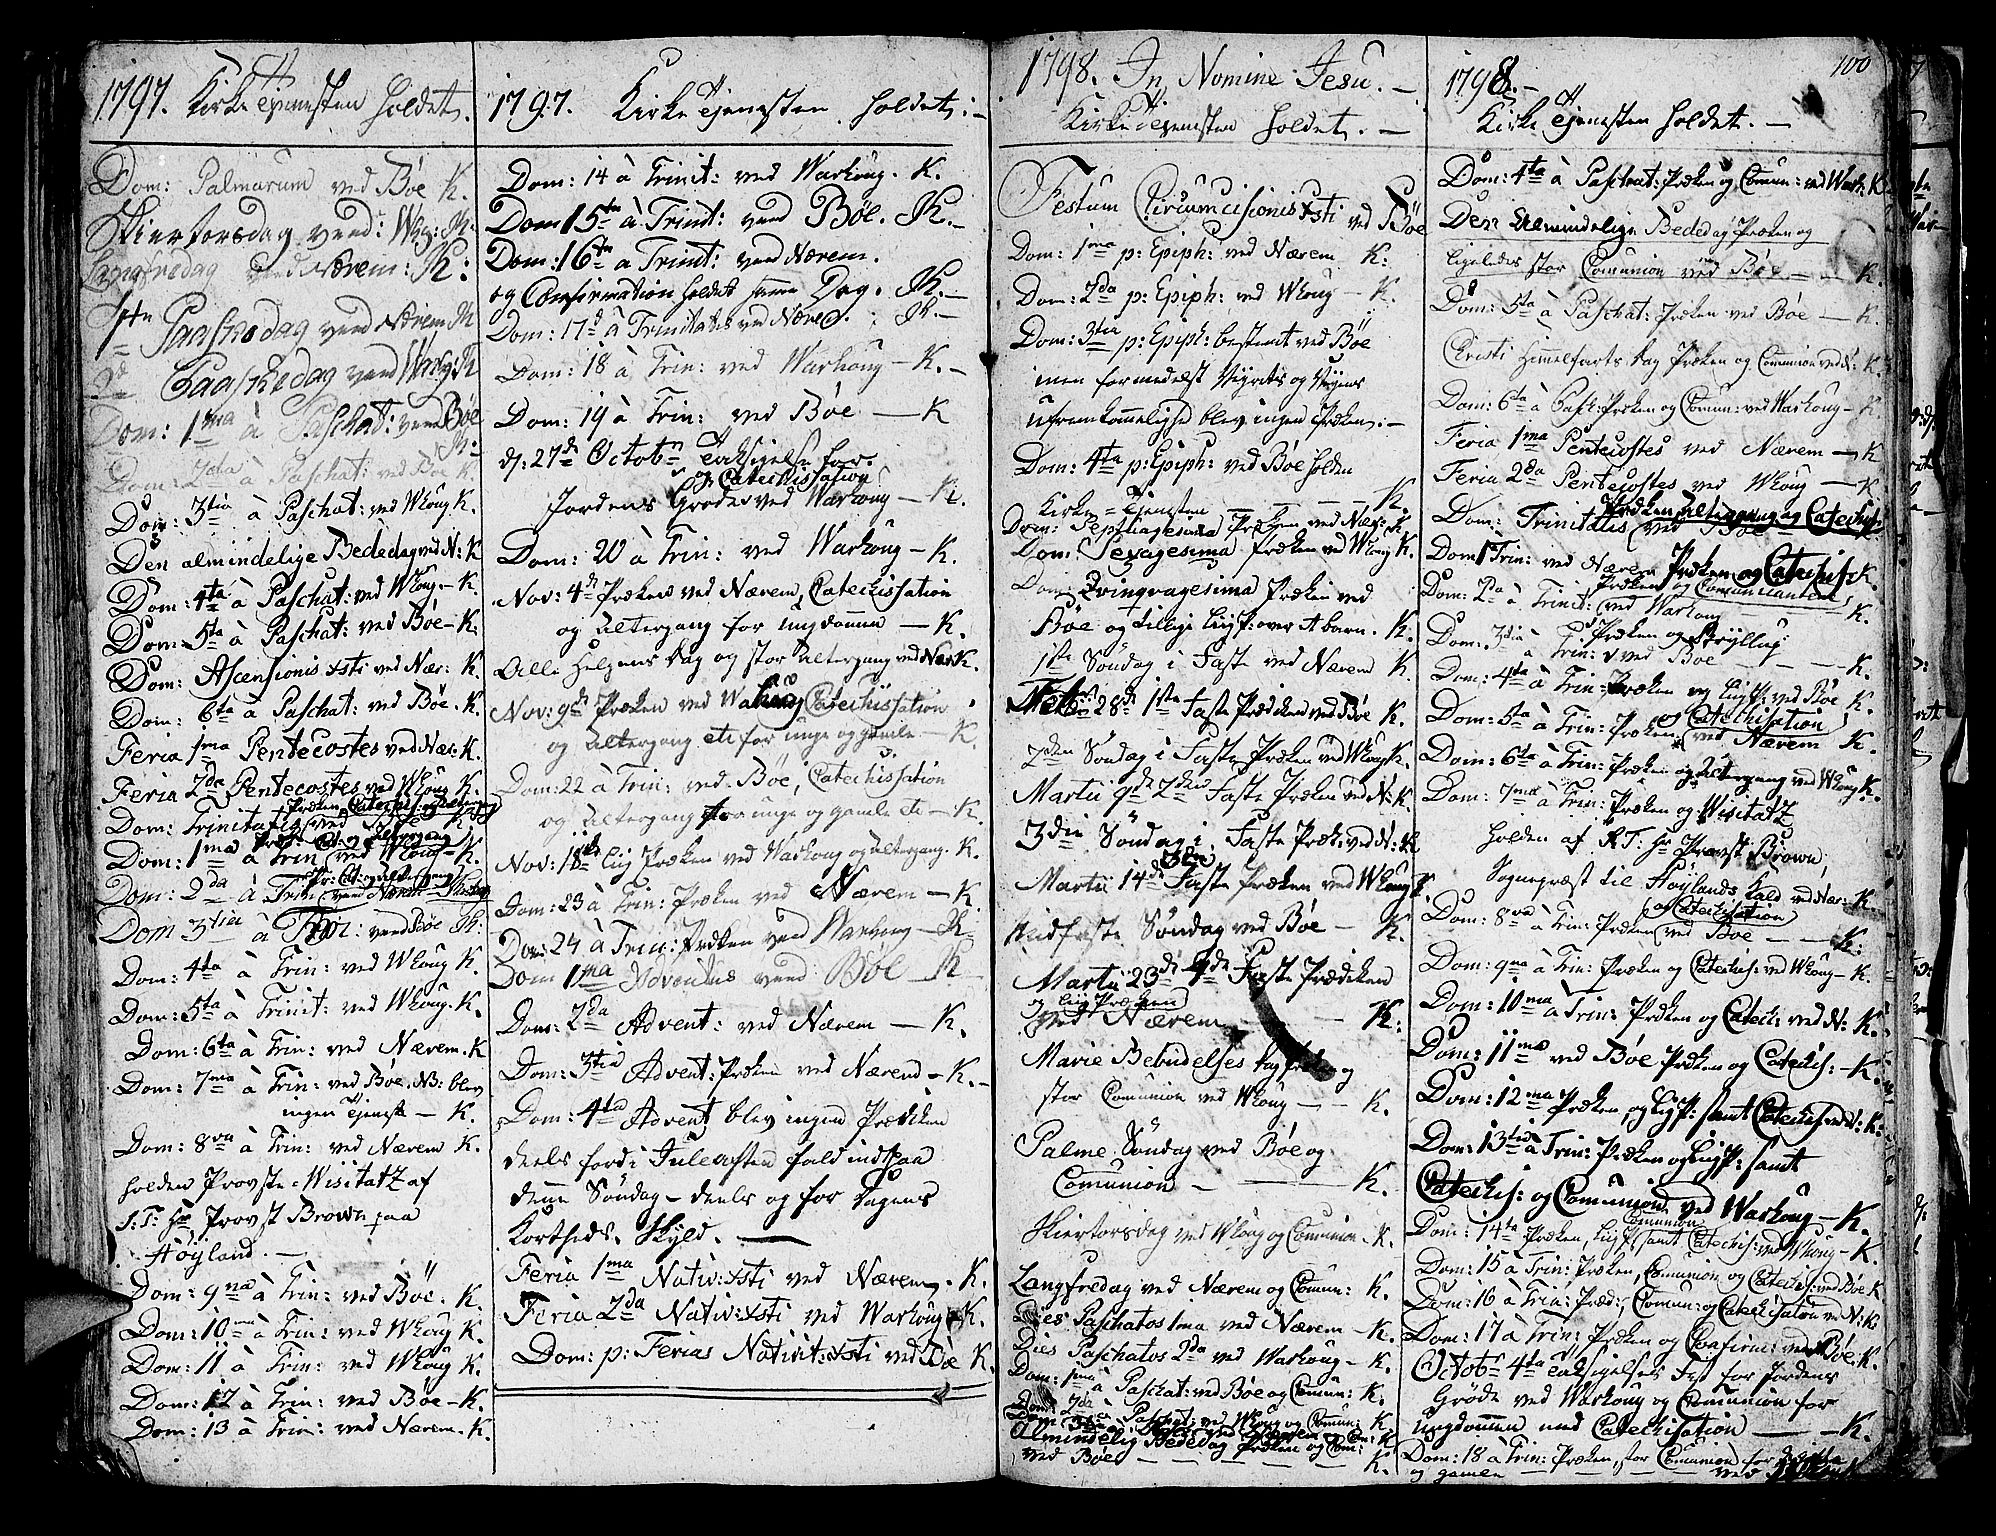 1797. Kirke Tjenesten holdet.
Dom: Palmarum ved Bøe K.
Skiertorsdag ved: Whg: K.
Langfredag ved Nærem: K:
1ste Paaskedag ved Nærem K
2d Paaskedag ved Warhg: K
Dom: 1ma à Paschat: ved Bøe
K:
Dom: 2da à Paschat: ved Bøe K.
Dom: 3tia à Paschat: ved Whoug K.
Den almindelige Bededag ved N: K
Dom: 4ta à Paschat: ved Whoug - K.
Dom: 5ta à Paschat: ved Bøe - K.
Dom: Ascensionis Xsti ved Nær: K.
Dom: 6ta à Paschat: ved Bøe. K.
Feria 1ma Pentecostes ved Nær: K.
Feria 2da Pentecostes ved Whoug K.
Præken, Catechis: og
Dom: Trinitatis ved Bøe K
Præk: Cat: og altergang
Dom: 1ma à Trin ved Whoug - K.
Pr: Cat: og altergang
Dom: 2da à Trin: ved Nærem
Dom 3tia à Trin: ved Bøe K:
Dom: 4ta à Trin: ved Whoug K.
Dom: 5ta à Trinit: ved Whoug. K.
Dom: 6ta à Trin: ved Nærem. K
Dom: 7ma à Trin: ved Bøe. NB: blev
ingen Tjeneste - K.
Dom: 8va à Trin: ved Nærem K.
holden Provste-Wisitatz af
S: T: Hr Provst Brown paa
Høyland. -
Dom: 9na à Trin: ved Bøe. K.
Dom: 10ma à Trin: ved Whoug K.
Dom: 11 à Trin: ved Whoug K.
Dom: 12 à Trin: ved Bøe - K.
Dom: 13 à Trin: ved Nærem. K.
1797. Kirke Tjenesten holdet: -
Dom: 14 à Trinit: ved Warhoug. K.
Dom 15ta à Trinit: ved Bøe. K. -
Dom: 16ta a Trinit: ved Nærem.
og Confirmation holdet samme Dag. K. -
Dom: 17d à Trinitatis ved Nærem. K. -
Dom: 18 à Trin: ved Warhoug - K. -
Dom: 19 à Trin: ved Bøe - K
d: 27de Octobr Taksigelse for
og Catechisation
Jordens Grøde ved Warhoug - K.
Dom: 20 à Trin: ved Warhoug - K.
Nov: 4de Præken ved Nærem, Catechisation
og altergang for ungdommen - K.
Alle Helgens Dag og stor altergang ved Nær K.
Nov: 9de Præken ved Warhoug Catechisation
og altergang etc for unge og gamle - K.
Dom: 22 à Trin: ved Bøe, Catechisation
og altergang for unge og gamle etc - K.
Nov: 18de Liig Præken ved Warhoug og altergang. K.
Dom: 23 à Trin: Præken ved Nærem - K.
Dom: 24 à Trin: Præken ved Warhoug - K.
Dom 1ma Adventus ved Bøe - K
Dom: 2da Advent: ved Nærem - K.
Dom: 3tia Advent: Præken ved Nærem - K. -
Dom: 4ta Advent blev ingen Præken
deels fordi Juleaften faldt ind paa
denne Søndag - deels og for Dagens
Kortheds Skyld. -
Feria 1ma Nativ: Xsti ved Nærem. K.
Feria 2da Nativ: Xsti ved Warhoug K.
Dom: p: Ferias Nativit: Xsti ved Bøe K.
1798. In Nomine Jesu. -
Kirke Tjenesten holdet. -
Festum Circumcisionis Xsti ved Bøe
Dom: 1ma p: Epiph: ved Nærem K:
Dom: 2da p: Epiph: ved Whoug - K.
Dom: 3tia p: Epiph: bestemt ved Bøe
men formedelst Veyrets og Veyens
ufremkommelighed blev ingen Præken: -
Dom: 4ta p: Epiph: ved Bøe holden
Kirke-Tjenesten - - - K.
Dom: Septuagesima Præken ved Nær: K
Dom: Sexagesima Præken ved Whoug K.
Dom: Qvinqvagesima Præken ved
Bøe og tillige Liigp: over et barn. K.
1ste Søndag i Faste ved Nærem K.
Febr: 28de 1ste Faste Prædiken ved Bøe K.
2den Søndag i Faste Præken ved Whoug K.
Martii 9de 2den Faste Præken ved N: K.
3die Søndag i Faste Præk: ved N: K
3die
Martii 14de Faste Præken ved Whoug K.
Midfaste Søndag ved Bøe - K.
Martii 23de 4de Faste Prædiken
og Liig Præken
ved Nærem - - K.
Marie Bebudelses Dag Præken og
stor Comunion ved Whoug - - K.
Palme Søndag ved Bøe og
Comunion - - K.
Skiertorsdag ved Whoug og Comunion - K.
Langfredag ved Nærem og Comun: K.
Dies Paschatos 1ma ved Nærem - K.
Dies Paschatos 2da ved Warhoug - K.
Dom: 1ma à Paschat: ved Bøe og Comun: K.
Dom: 2da à Paschat: ved Whoug og Comun: K
Dom: 3tia à Paschat: ved Nærem og Com: K
Almindelig Bededag Præken og Com:
ved Bøe - - - K.
1798. -
100
Kirke Tjenesten holdet. -
Dom: 4ta à Paschat: Præken og Comun: ved Warh: K
Den Almindelige Bededag Præken og
ligeledes stor Comunion ved Bøe - - K.
Dom: 5ta à Paschat: Præken ved Bøe - K.
Christi Himmelfarts Dag Præken og Comunion ved N: K.
Dom: 6ta à Pasch: Præken og Comun: ved Warhoug - K.
Feria 1ma Pentecostes ved Nærem - K
Feria 2da Pentecostes ved Whoug - K
Præken altergang og Catechis:
Dom: Trinitatis ved Bøe
Dom 1 Trin: ved Nærem Præken og Catechis: K.
Præken og Comunicantere
Dom: 2da à Trinit: ved Warhoug - K.
Præken og Bryllup
Dom: 3dia à Trin: ved Bøe - - - K.
Dom: 4ta à Trin: Præken og Liigp: ved Bøe K.
og Catechisation
Dom: 5ta à Trin: Præken ved Nærem K.
Dom: 6ta à Trin: Præken og altergang ved Whoug K.
Dom: 7ma à Trin: Præken og Wisitatz
holden af S: T: Hr Provst Brown,
Sognepræst til Høylands Kald ved Nær: K.
og Catechisation
Dom: 8va à Trin: Præken ved Bøe - - K:
Dom: 9na à Trin: Præken og Catechis: ved Whoug - K.
Dom: 10ma à Trin: Præken og Catech: ved N: K.
Dom: 11ma ved Bøe Præken og Catechis: - K.
Dom: 12ma Præken, og Liigp: samt Catechis: ved N: K:
Dom: 13tia à Trin: Præken og Liigp: samt
Catechis: og Comunion ved Warhoug - K.
Comunion
Dom: 14ta Præken, Liigp: samt Catechis: ved Whoug - K
Dom: 15 à Trin: Præken, Comunion og Catechis: ved Bøe K
Dom: 16 à Trin: Præd:, Comun: og Catechisation ved N: K
Dom: 17 à Trin: Præken og Confirm: ved Bøe. K.
Octobr 4ta Taksigelses Fest for Jordens
Grøde ved Warhoug og Comunion for
ungdommen med Catechisation - - K.
Dom: 18 à Trin: Præken, stor Comunion for
og gamle - - - ved